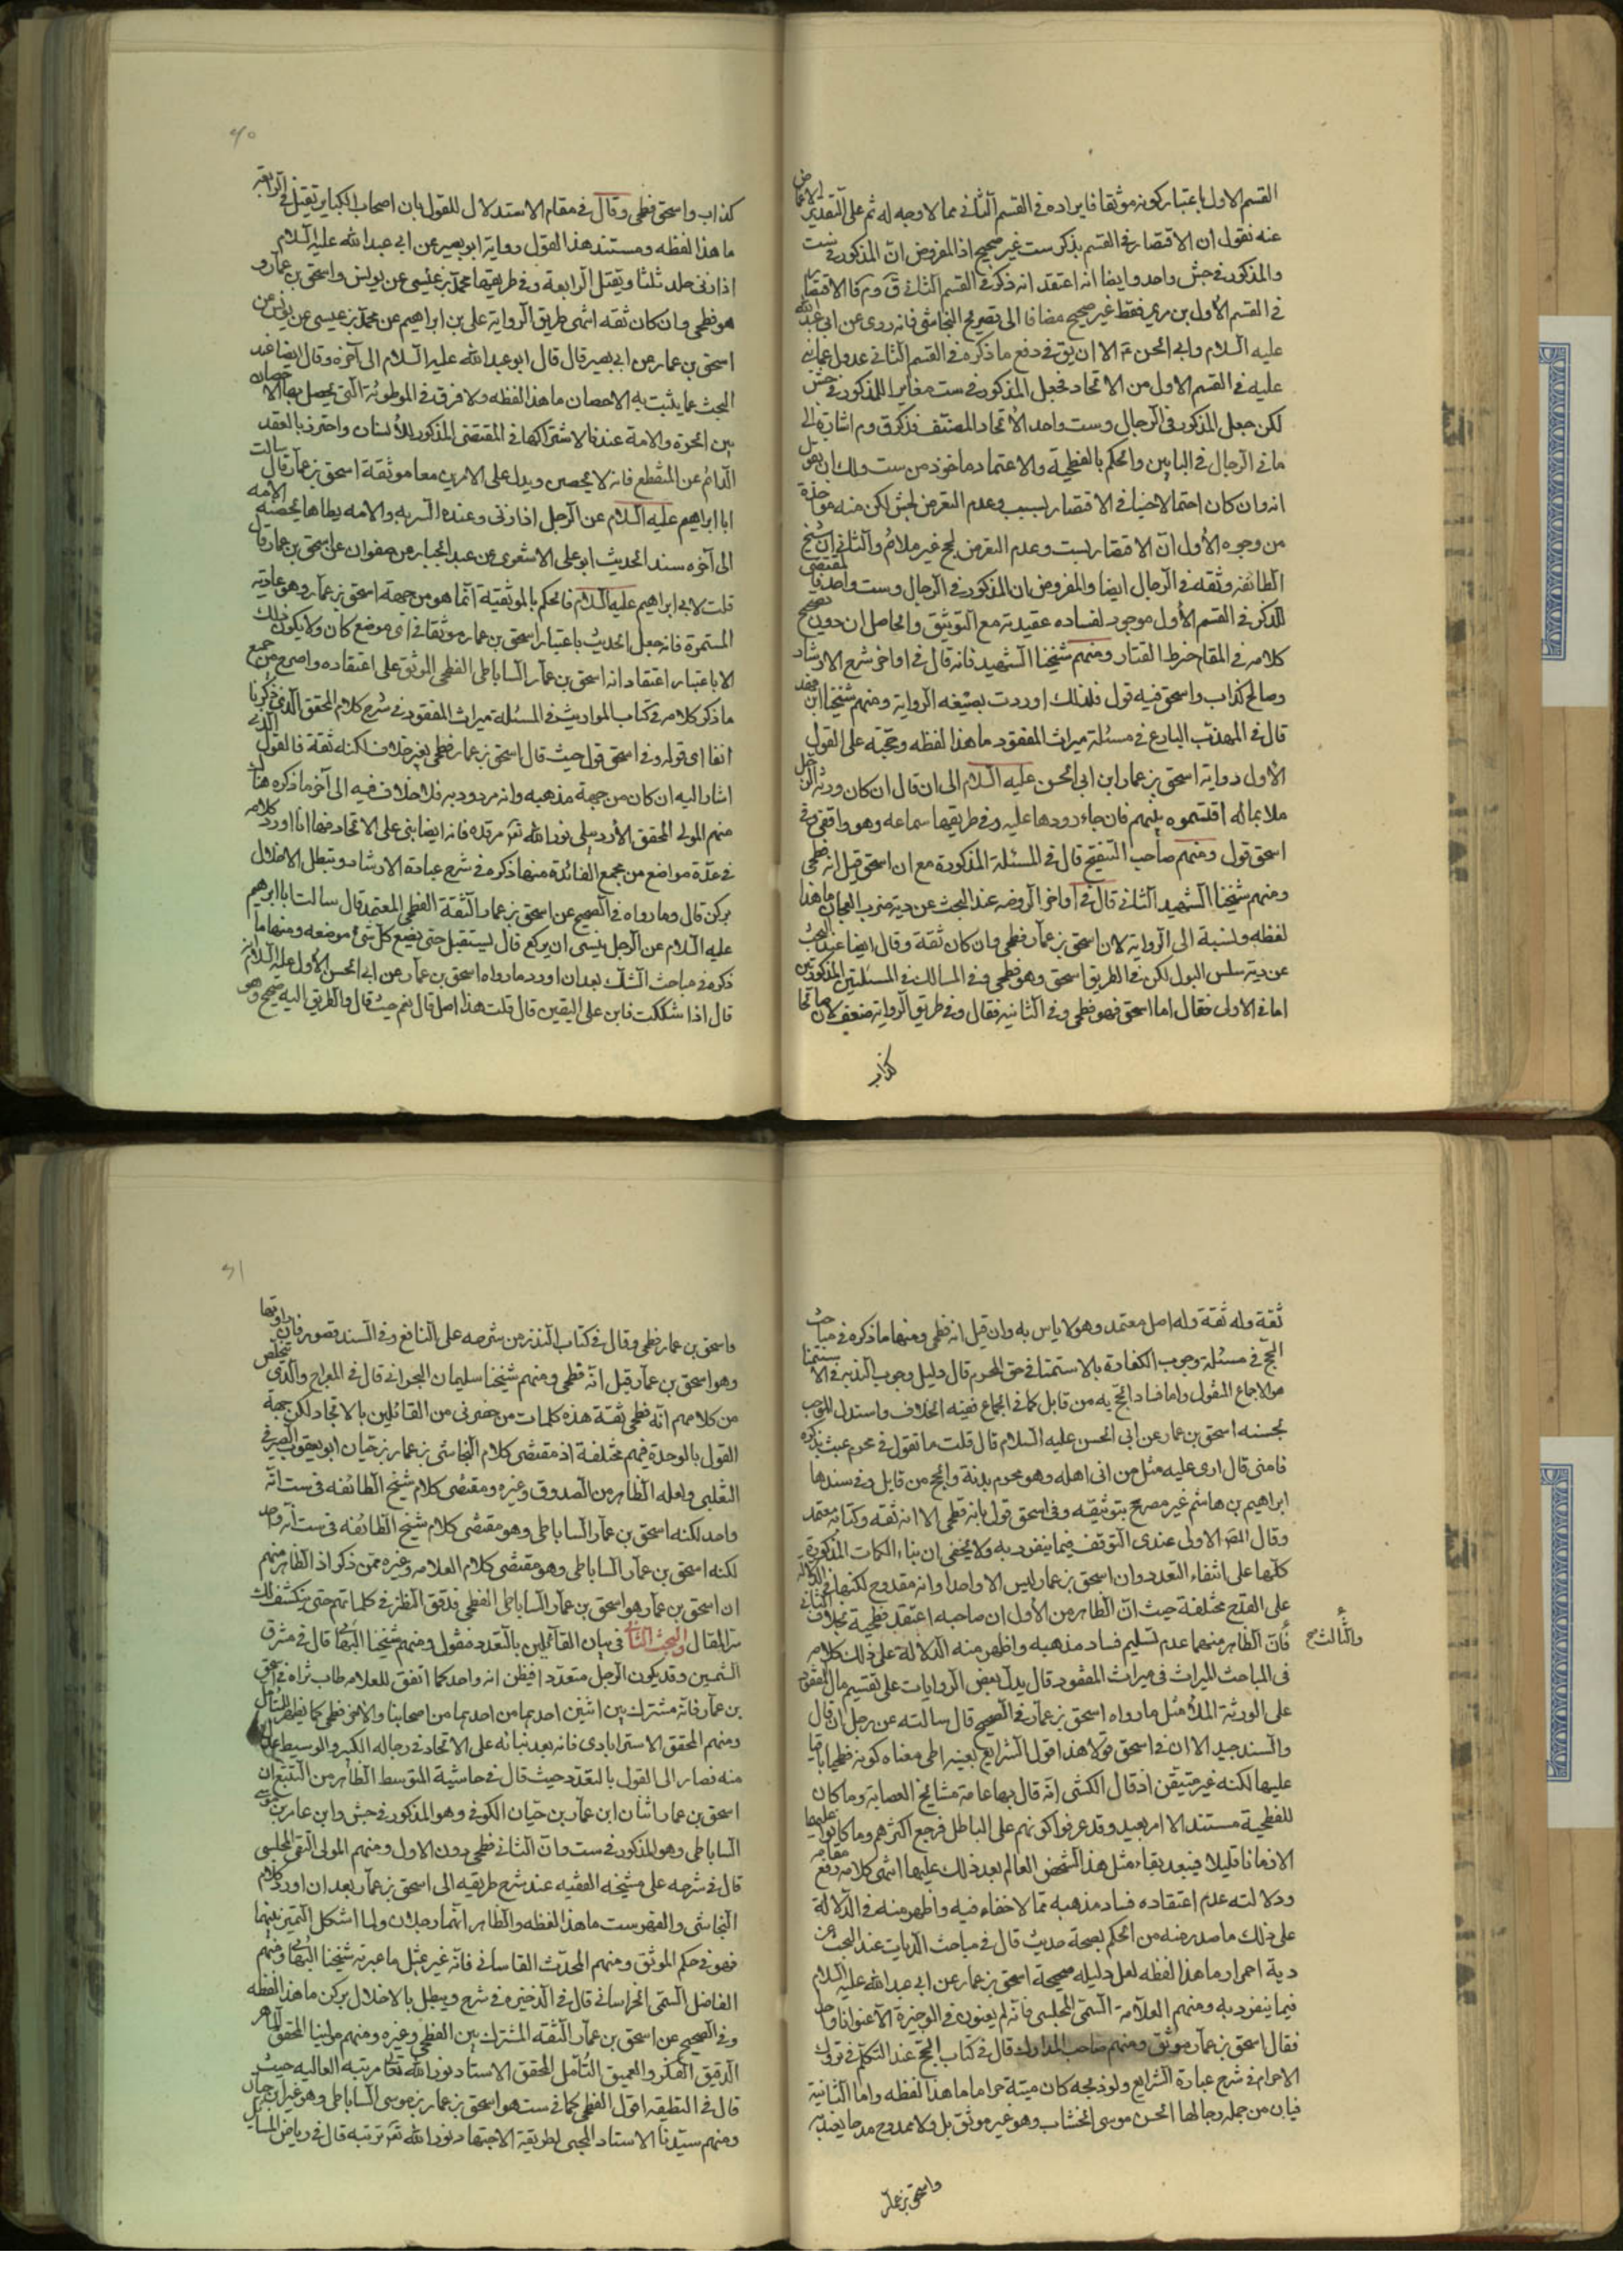 القسم الاول باعتبار كونه موثقا فايراده في القسم الثاني مما لا وجه له ثم على التقدير الاغماض
عنه نقول ان الاقتصار في القسم بذكر ست غير صحيح اذ المفروض ان المذكور في ست
والمذكور في جش واحد وايضا انه اعتقد انه ذكره في القسم الثاني ق وم فالاقتصار
في القسم الأول بن مرعي فقط غير صحيح مضافا الى تصريح النجاشي فانه روى عن ابي عبدالله
عليه السلام وابي الحسن ع الا ان يق في دفع ما ذكره في القسم الثاني عدول عما بنى
عليه في القسم الاول من الاتحاد فجعل المذكور في ست مغايرا للمذكور في جش
لكن جعل المذكور في الرجال وست واحد الاتحاد المصنف فذكر ق وم اشارة الى
ما في الرجال في البابين والحكم بالفطحية والاعتماد ماخوذ من ست ولك ان تقول
انه وان كان احتمالا في الاقتصار لسبب وعدم التعرض لجش لكن منه مؤاخذة
من وجوه الأول ان الاقتصار لست وعدم التعرض لجخ غير ملائم والثاني ان شيخ
الطائفة وثقه في الرجال ايضا والمفروض ان المذكور في الرجال وست واحد فما يقتضي
الذكر في القسم الأول موجود لفساده عقيدته مع التوثيق والحاصل ان دون تصحيح
كلامه في المقام خرط القتاد ومنهم شيخنا الشهيد فانه قال في اواخر شرح الارشاد
وصالح كذاب واسحق فيه قول فلذلك اوردت بصيغه الرواية ومنهم شيخنا ابن فهد
قال في المهذب البارع في مسئلة ميراث المفقود ما هذا لفظه وحجته على القول
الأول رواية اسحق بن عمار ابن ابي الحسن عليه السلام الى ان قال ان كان ورثة الرجل
ملا بماله اقتسموه بينهم فان جاء ردوها عليه وفي طريقها سماعه وهو واقفي وفي
اسحق قول ومنهم صاحب التنقيح قال في المسئلة المذكورة مع ان اسحق قيل انه فطحى
ومنهم شيخنا الشهيد الثاني قال في اواخر الروضه عند البحث عن دية ضرب العجان ما هذا
لفظه ونسبة الى الرواية لان اسحق بن عمار فطحى وان كان ثقة وقال ايضا عند البحث
عن دية سلس البول لكن في الطريق اسحق وهو فطحى وفي المسالك في المسئلتين المذكورتين
اما في الاولى فقال اما اسحق فهو فطحى وفي الثانيه فقال وفي طريق الرواية ضعف لان صالحا
كذاب
٤٠
كذاب واسحق فطحى وقال في مقام الاستدلال للقول بان اصحاب الكباير تقتل في الرابعة
ما هذا لفظه ومستند هذا القول رواية ابو بصير عن ابي عبدالله عليه السلام
اذا زنى جلد ثلثا ويقتل الرابعة وفي طريقها محمد بن عيسى عن يونس واسحق بن عمار و
هو فطحى وان كان ثقه انتهى طريق الرواية علي بن ابراهيم عن محمد بن عيسى عن يونس عن
اسحق بن عمار عن ابي بصير قال قال ابو عبدالله عليه السلام الى آخره وقال ايضا عند
البحث عما يثبت به الاحصان ما هذا لفظه ولا فرق في الموطوئة التي يحصل بها الاحصان
بين الحرة والامة عندنا لاشتراكها في المقتضى المذكور للانسان واحترز بالعقد
الدائم عن المنقطع فانه لا يحصن ويدل على الامرين معا موثقة اسحق بن عمار قال سالت
ابا ابراهيم عليه السلام عن الرجل اذا زنى وعنده السريه والامه يطاها تحصنه الامه
الى آخره سند الحديث ابو على الاشعري عن عبد الجبار عن صفوان عن اسحق بن عمار قال
قلت لابي ابراهيم عليه السلام فالحكم بالموثقية انما هو من جهة اسحق بن عمار وهو عادته
المستمرة فانه جعل الحديث باعتبار اسحق بن عمار موثقا في اي موضع كان ولا يكون ذلك
الا باعتبار اعتقاد انه اسحق بن عمار الساباطى الفطحى الموثق على اعتقاده واصرح من جميع
ما ذكر كلامه في كتاب المواريث في المسئلة ميراث المفقود في شرح كلام المحقق الذي ذكرنا
انفا اى قوله وفي اسحق قول حيث قال اسحق بن عمار فطحى بغير خلاف لكنه ثقة فالقول الذي
اشار اليه ان كان من جهة مذهبه وانه مردود به فلا خلاف فيه الى آخر ما ذكره هناك
منهم المولى المحقق الأردبيلى نور الله تعالى مرقده فانه ايضا بنى على الاتحاد فها انا اورد كلامه
في عدة مواضع من مجمع الفائدة منها ذكره في شرح عبادة الارشاد وتبطل الاخلال
بركن قال وما رواه في الصحيح عن اسحق بن عمار الثقة الفطحى المعتمد قال سالت ابا ابرهيم
عليه السلام عن الرجل ينسى ان يركع قال يستقبل حتى يضع كل شئ موضعه ومنها ما
ذكره في مباحث الشك بعد ان اورد ما رواه اسحق بن عمار عن ابي الحسن الأول عليه السلام انه
قال اذا شككت فابن على اليقين قال قلت هذا اصل قال نعم حيث قال والطريق اليه صحيح وهو
ثقة وله ثقة وله اصل معتمد وهو لا باس به وان قيل انه فطحى ومنها ما ذكره في مباحث
الحج في مسئلة وجوب الكفارة بالاستمنا في حق المحرم قال دليل وجوب البدنه في الاستمنا
هو الاجماع المنقول واما فساد الحج به من قابل كما في الجماع ففيه الخلاف واستدل للموجب
بحسنه اسحق بن عمار عن ابي الحسن عليه السلام قال قلت ما تقول في محرم عبث بذكره
فامنى قال ارى عليه مثل من اتى اهله وهو محرم بدنة والحج من قابل وفي سندها
ابراهيم بن هاشم غير مصرح بتوثيقه وفي اسحق قول بانه فطحى الا انه ثقه وكتابه معتمد
وقال المص الاولى عندى التوقف فيما ينفرد به ولا يخفى ان بناء الكلمات المذكورة
كلها على انتفاء التعدد وان اسحق بن عمار ليس الا واحدا وانه مقدوح لكنها في الدلالة
على القدح مختلفة حيث ان الظاهر من الأول ان صاحبه اعتقد فطحية بخلاف الثاني
والثالث صح
فان الظاهر منهما عدم تسليم فساد مذهبه واظهر منه الدلالة على ذلك كلامه
في المباحث الميراث في ميراث المفقود قال يدل بعض الروايات على تقسيم مال المفقود
على الورثة الملأ مثل ما رواه اسحق بن عمار في الصحيح قال سالته عن رجل ان قال
والسند جيد الا ان في اسحق قولا هذا قول الشرايع بعينه اطى معناه كونه فطحيا باقيا
عليها لكنه غير متيقن اذ قال الكشى انه قال بها عامة مشائخ العصابة وما كان
للفطحية مستند الا امر بعيد وقد عرفوا كونهم على الباطل فرجع اكثرهم وما كانوا عليها
الا زمانا قليلا فيبعد بقاء مثل هذا الشخص العالم بعد ذلك عليها انتهى كلامه رفع مقامه
ودلالته عدم اعتقاده فساد مذهبه مما لا خفاء فيه واظهر منه في الدلالة
على ذلك ما صدر منه من الحكم بصحة حديث قال في مباحث الديات عند البحث عن
دية احمرار ما هذا لفظه لعل دليله صحيحة اسحق بن عمار عن ابي عبدالله عليه السلام
فيما ينفرد به ومنهم العلامة السمى المجلسى فانه لم يعنون في الوجيزة الا عنوانا واحد
فقال اسحق بن عمار موثق ومنهم صاحب المدارك قال في كتاب الحج عند التكلم في تروك
الاحرام في شرح عبارة الشرايع ولو ذبحه كان ميتة حراما ما هذا لفظه واما الثانية
فبان من جمله رجالها الحسن موسى الخشاب وهو غير موثق بل ولا ممدوح مدحا يعتد به
واسحق بن عمار
٤١
واسحق بن عمار فطحى وقال في كتاب النذر من شرحه على النافع وفي السند قصور فان راويها
وهو اسحق بن عمار قيل انه فطحى ومنهم شيخنا سليمان البحرانى قال في المعراج والذى تلخص
من كلامهم انه فطحى ثقة هذه كلمات من حضرنى من القائلين بالاتحاد لكن جهة
القول بالوحدة فيهم مختلفة اذ مقتضى كلام النجاشى بن عمار بن حيان ابو يعقوب الصيرفي
التغلبى ولعله الظاهر من الصدوق وغيره ومقتضى كلام شيخ الطائفه في ست انه
واحد لكنه اسحق بن عمار الساباطى وهو مقتضى كلام شيخ الطائفه في ست انه واحد
لكنه اسحق بن عمار الساباطى وهو مقتضى كلام العلامه وغيره ممن ذكر اذ الظاهر منهم
ان اسحق بن عمار هو اسحق بن عمار الساباطى الفطحى فدقق النظر في كلماتهم حتى ينكشف لك
المقال والبحث الثاني في بيان القائلين بالتعدد فنقول ومنهم شيخنا البهائي قال في مشرق
الشمسين وقد يكون الرجل متعددا فيظن انه واحد كما اتفق للعلامه طاب ثراه في اسحق
بن عمار فانه مشترك بين اثنين احدهما من احدهما من اصحابنا والاخر فطحى كما يظهر للمتأمل
ومنهم المحقق الاسترابادى فانه بعد بنائه على الاتحاد في رجاله الكبير والوسيط عدل
منه فصار الى القول بالتعدد حيث قال في حاشية المتوسط الظاهر من التتبع ان
اسحق بن عمار اثنان ابن عمار بن حيان الكوفي وهو المذكور في جش وابن عمار بن موسى
الساباطى وهو المذكور في ست وان الثاني فطحى دون الاول ومنهم المولى التقى المجلسى
قال في شرحه على مشيخه الفقيه عند شرح طريقه الى اسحق بن عمار بعد ان اورد كلام
النجاشى والفهرست ما هذا لفظه والظاهر انهما رجلان ولما اشكل التميز بينهما
فهو في حكم الموثق ومنهم المحدث القاسانى فانه غير بمثل ما عبر به شيخنا البهائي ومنهم
الفاضل السمى الخراسانى قال في الذخيره في شرح ويبطل بالاخلال بركن ما هذا لفظه
وفي الصحيح عن اسحق بن عمار الثقه المشترك بين الفطحى وغيره ومنهم مولينا المحقق الماهر
الدقيق الفكر والعميق التامل المحقق الاستاد نور الله تعالى مرتبه العاليه حيث
قال في التعليقه اقول الفطحى كما في ست هو اسحق بن عمار بن موسى الساباطى وهو غير ابن حيان
ومنهم سيدنا الاستاد المحيى لطريقة الاجتهاد نور الله تعالى تربته قال في رياض المسايل